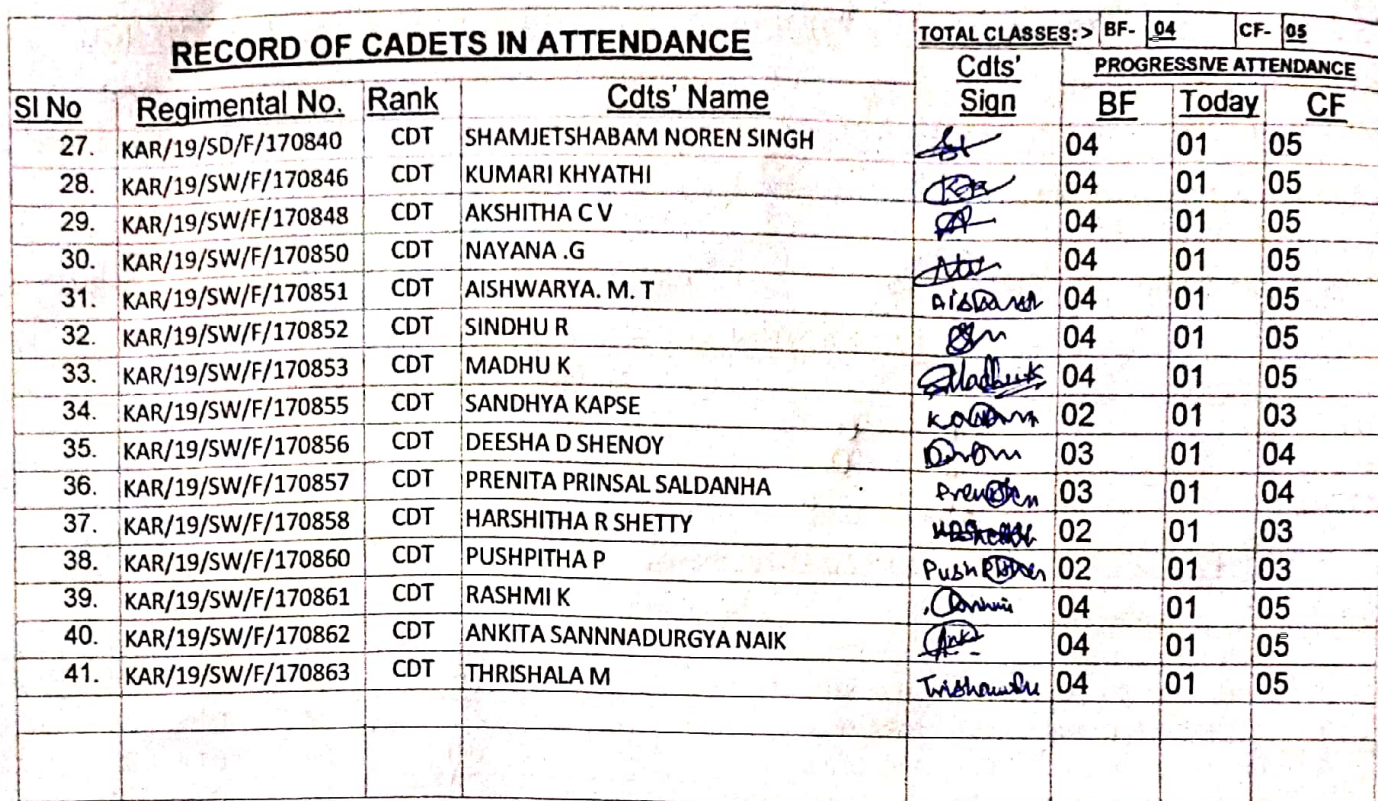 RECORD OF CADETS IN ATTENDANCE TOTAL CLASSES:> BF- 04 CF- 05
Cdts' PROGRESSIVE ATTENDANCE
Sl No Regimental No. Rank Cdts' Name Sign BF Today CF
27. KAR/19/SD/F/170840 CDT SHAMJETSHABAM NOREN SINGH 04 01 05
28. KAR/19/SW/F/170846 CDT KUMARI KHYATHI 04 01 05
29. KAR/19/SW/F/170848 CDT AKSHITHA C V 04 01 05
30. KAR/19/SW/F/170850 CDT NAYANA .G 04 01 05
31. KAR/19/SW/F/170851 CDT AISHWARYA. M. T 04 01 05
32. KAR/19/SW/F/170852 CDT SINDHU R 04 01 05
33. KAR/19/SW/F/170853 CDT MADHU K 04 01 05
34. KAR/19/SW/F/170855 CDT SANDHYA KAPSE 02 01 03
35. KAR/19/SW/F/170856 CDT DEESHA D SHENOY 03 01 04
36. KAR/19/SW/F/170857 CDT PRENITA PRINSAL SALDANHA 03 01 04
37. KAR/19/SW/F/170858 CDT HARSHITHA R SHETTY 02 01 03
38. KAR/19/SW/F/170860 CDT PUSHPITHA P 02 01 03
39. KAR/19/SW/F/170861 CDT RASHMI K 04 01 05
40. KAR/19/SW/F/170862 CDT ANKITA SANNNADURGYA NAIK 04 01 05
41. KAR/19/SW/F/170863 CDT THRISHALA M 04 01 05